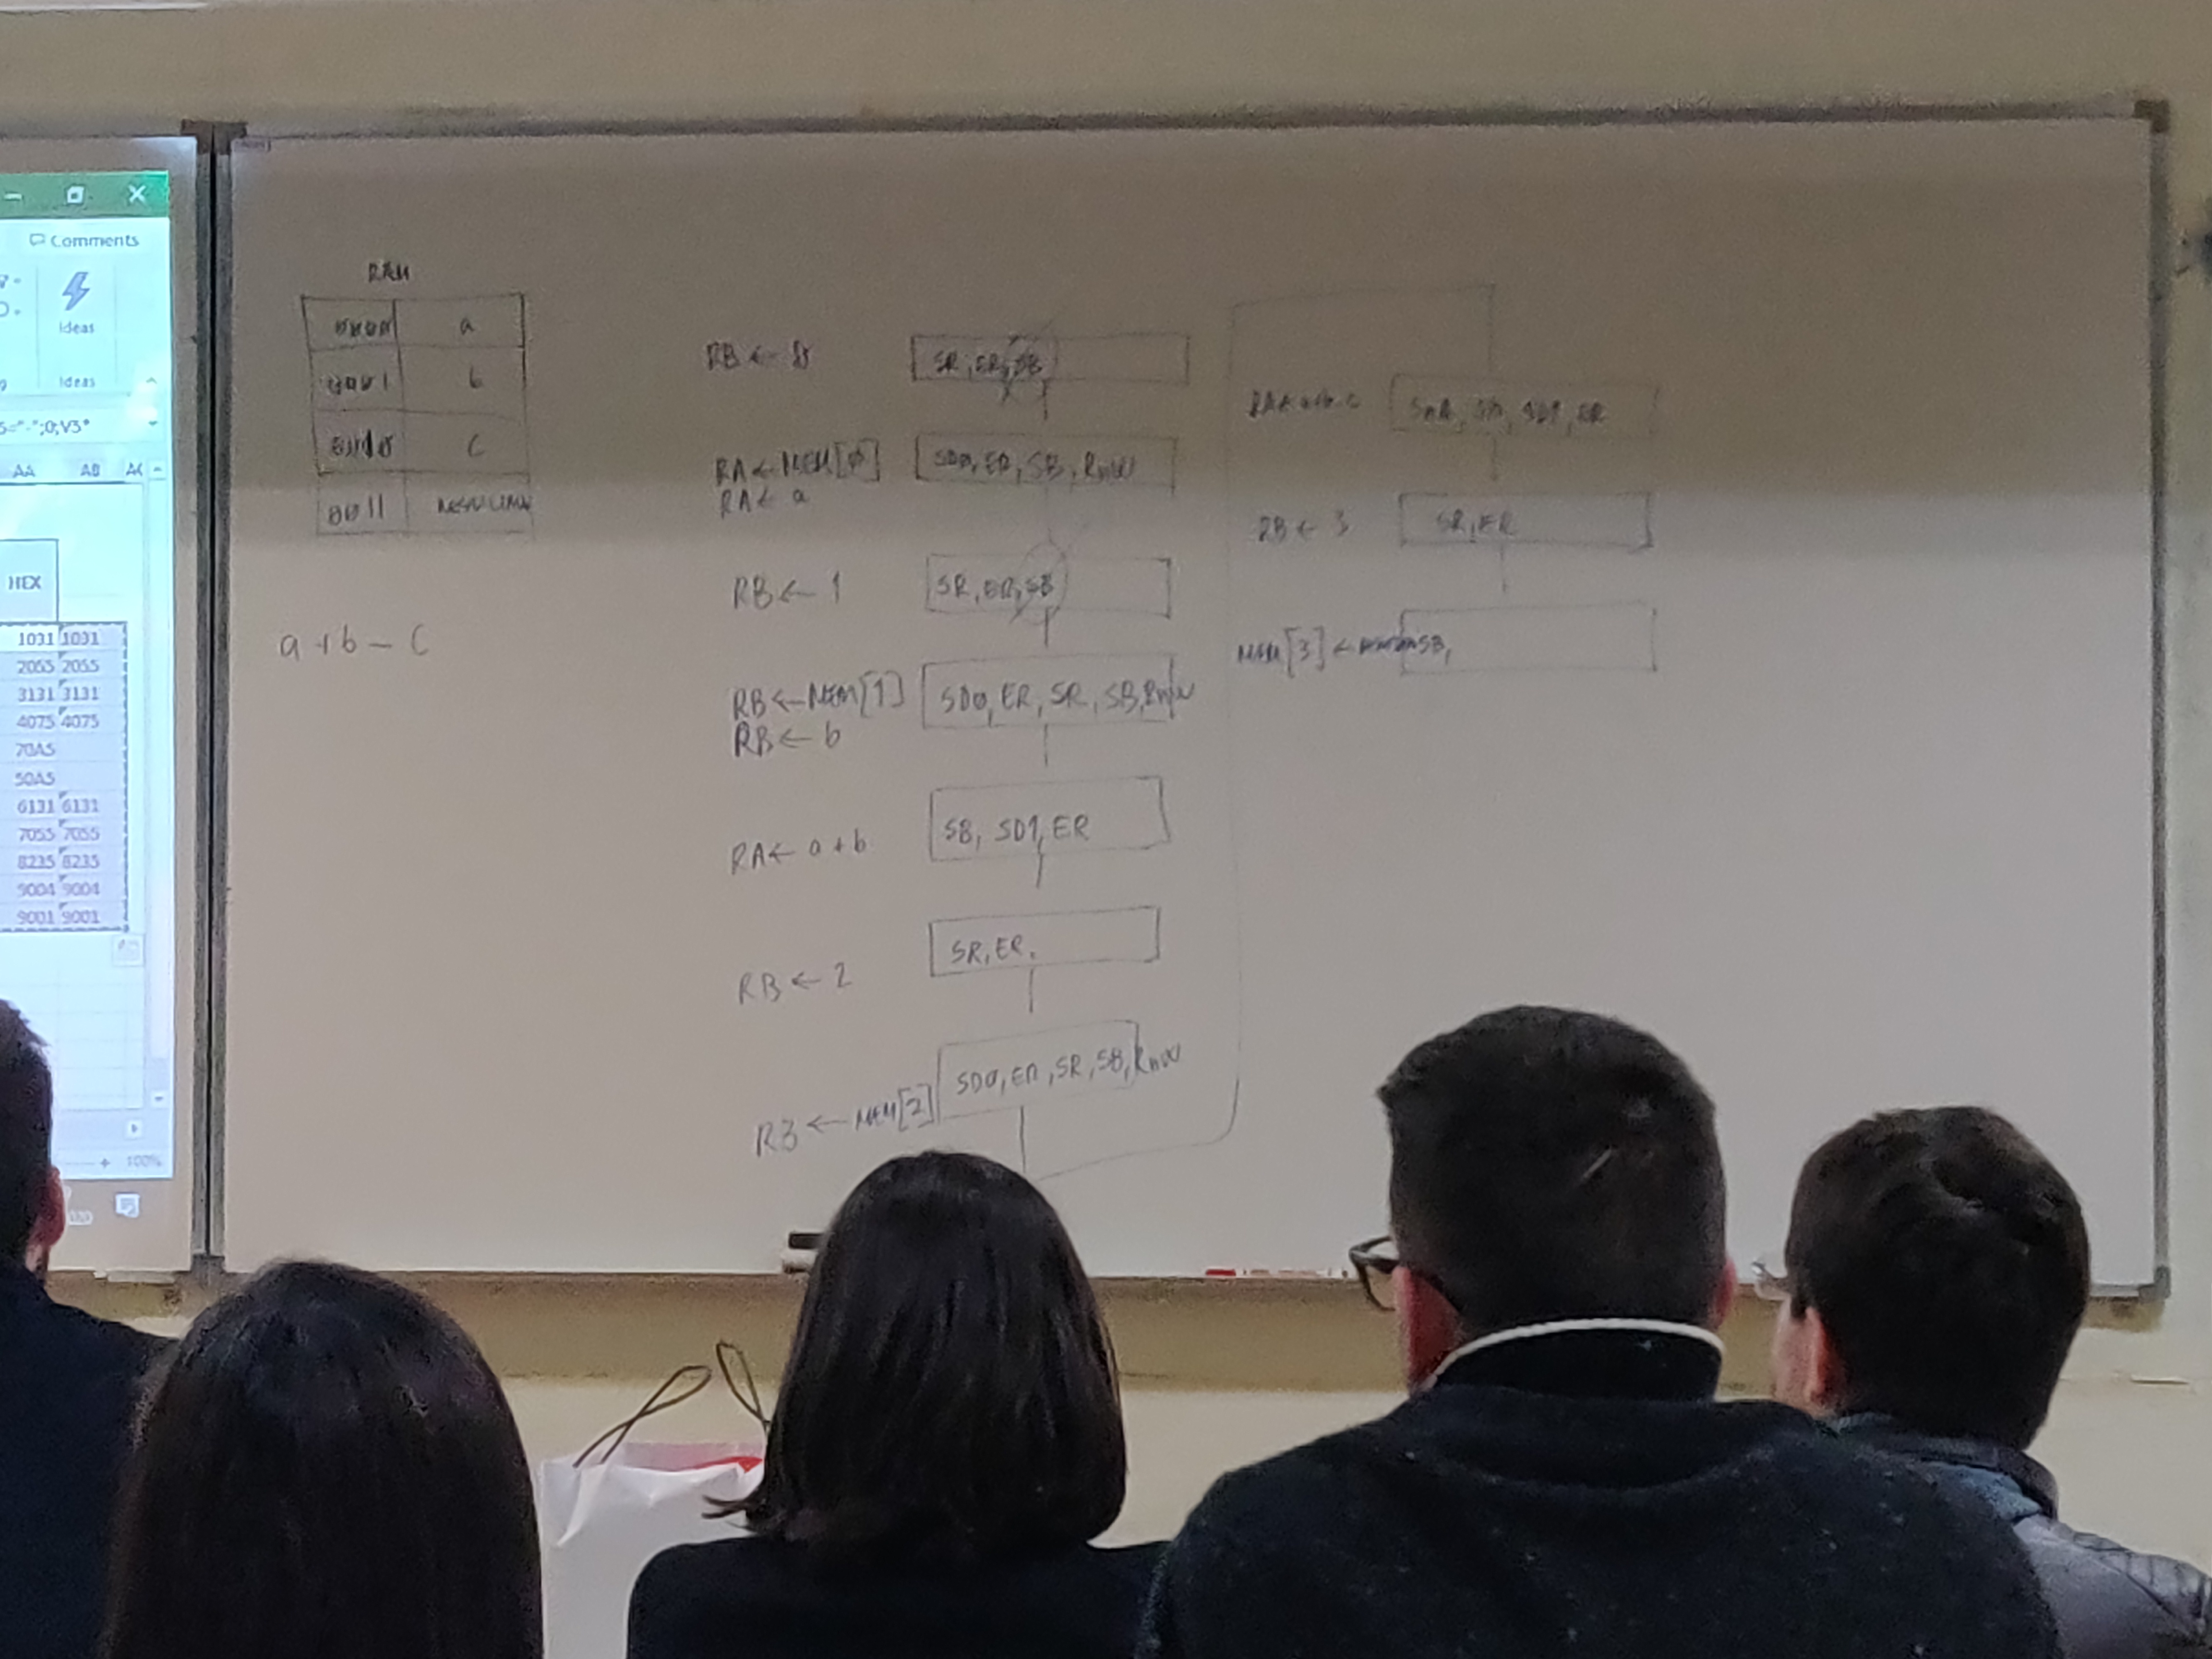 Comments
Ideas
Ideas
S="-";0;V3*
AA AB
HEX
1031 1031
2055 2055
3131 3131
4075 4075
70A5
50A5
6131 6131
7055 7055
8235 8235
9004 9004
9001 9001
100%
RAM
a
b
C
0011
a + b - C
RB ← 0
SR, ER, SB
RA ← MEM[0]
SD0, ER, SB, RnW
RA ← a
RB ← 1
SR, ER, SB
RB ← MEM[1]
SD0, ER, SR, SB, RnW
RB ← b
RA ← a + b
SB, SD1, ER
RB ← 2
SR, ER.
RB ← MEM[2]
SD0, ER, SR, SB, RnW
SD1, ER
RB ← 3
SR, ER
MEM[3] ←
SB,